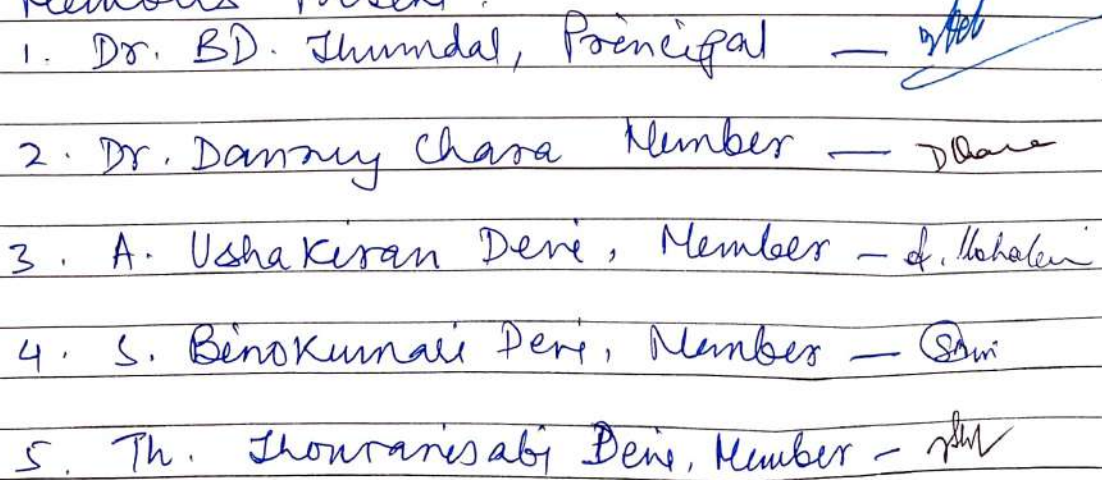 Members Present:
1. Dr. BD. Thumdal, Principal —
2. Dr. Danny Chara Member — DChara
3. A. Ushakiran Devi, Member —
4. S. Binokumari Devi, Member —
5. Th. Thouranisabi Devi, Member -